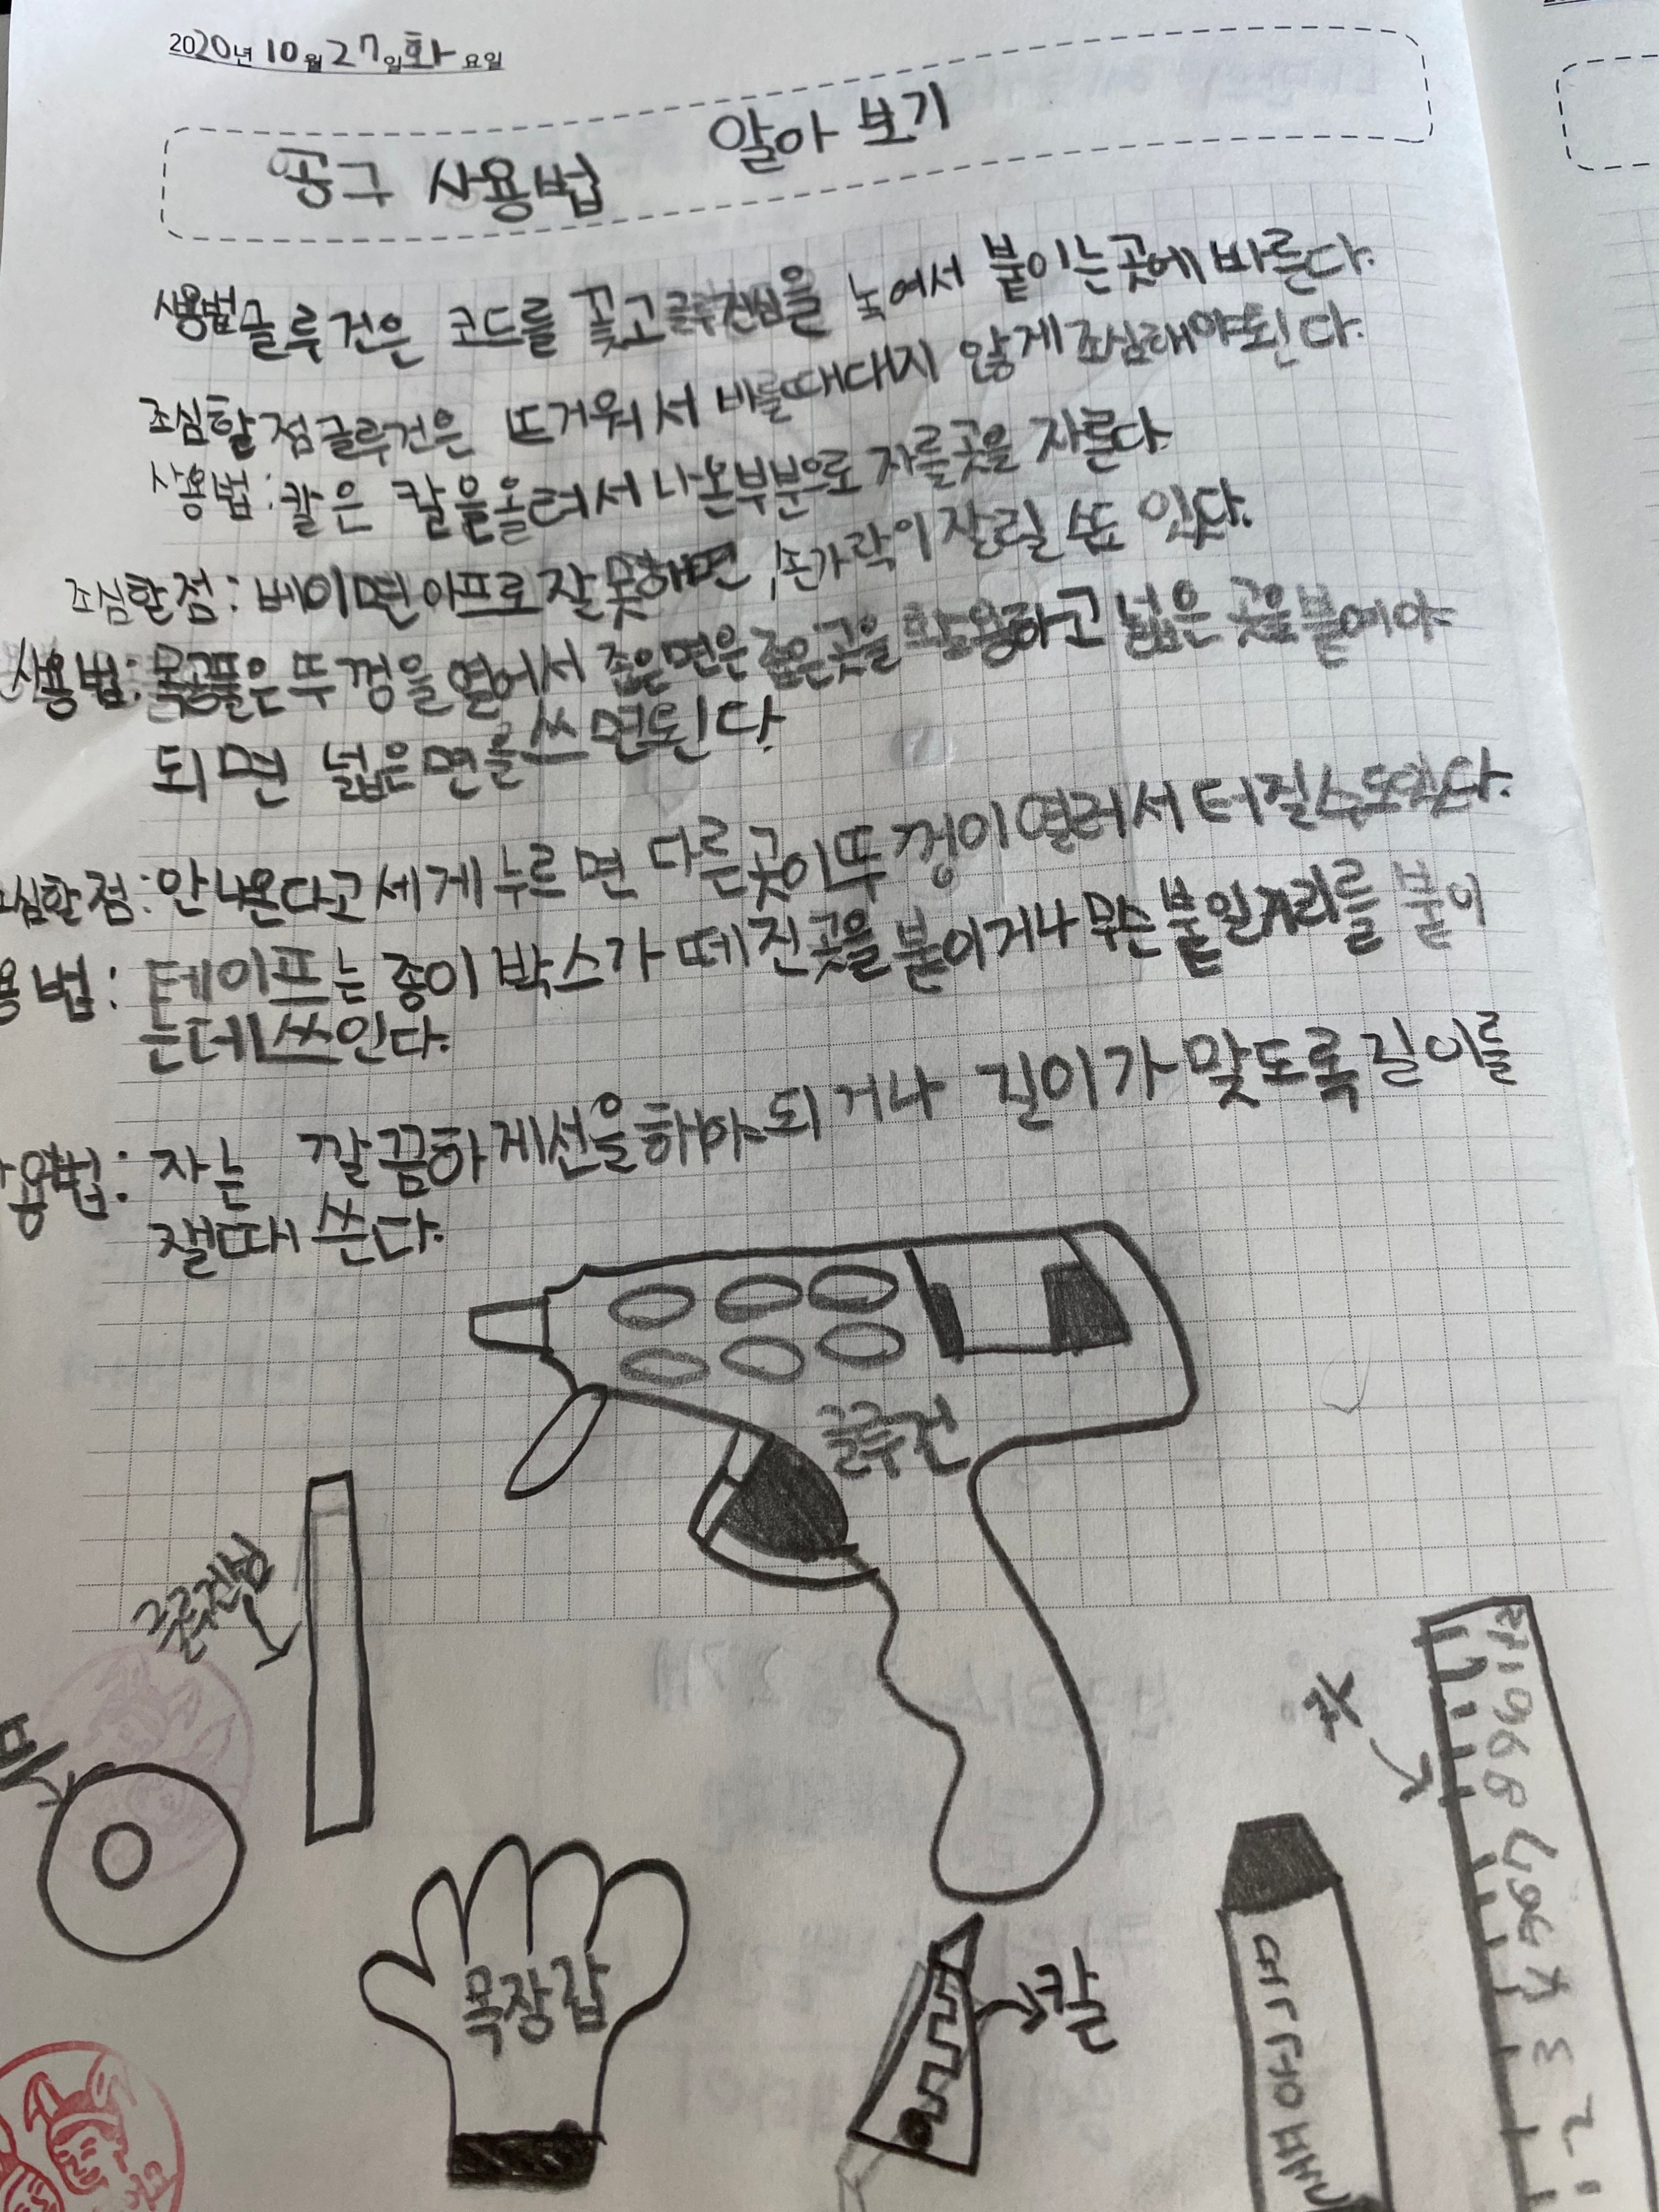 2020년 10월 27일 화요일
공구 사용법 알아 보기
사용법 글루건은 코드를 꽂고 글루건심을 녹여서 붙이는 곳에 바른다.
조심할 점 글루건은 뜨거워서 바를때 대지 않게 조심해야된다.
사용법: 칼은 칼을 올려서 나온부분으로 자를곳을 자른다.
조심할점: 베이면 아프로 잘못하면, 손가락이 잘릴 수도 있다.
사용법: 목공풀은 뚜껑을 열어서 좁은면은 좁은곳을 활용하고 넓은 곳을 붙에야
되면 넓은면을 쓰면된다.
심할점: 안나온다고 세게 누르면 다른곳이 뚜껑이 열러서 터질수도있다.
용법: 테이프는 종이 박스가 떼진곳을 붙이거나 무슨 붙일거리를 붙이
는데 쓰인다.
사용법: 자는 깔끔하게 선을 해야 되거나 길이가 맞도록 길이를
잴때 쓴다.
글루건
글루건심
프
자
목장갑
칼
네임펜
9
8
7
6
5
4
3
2
1